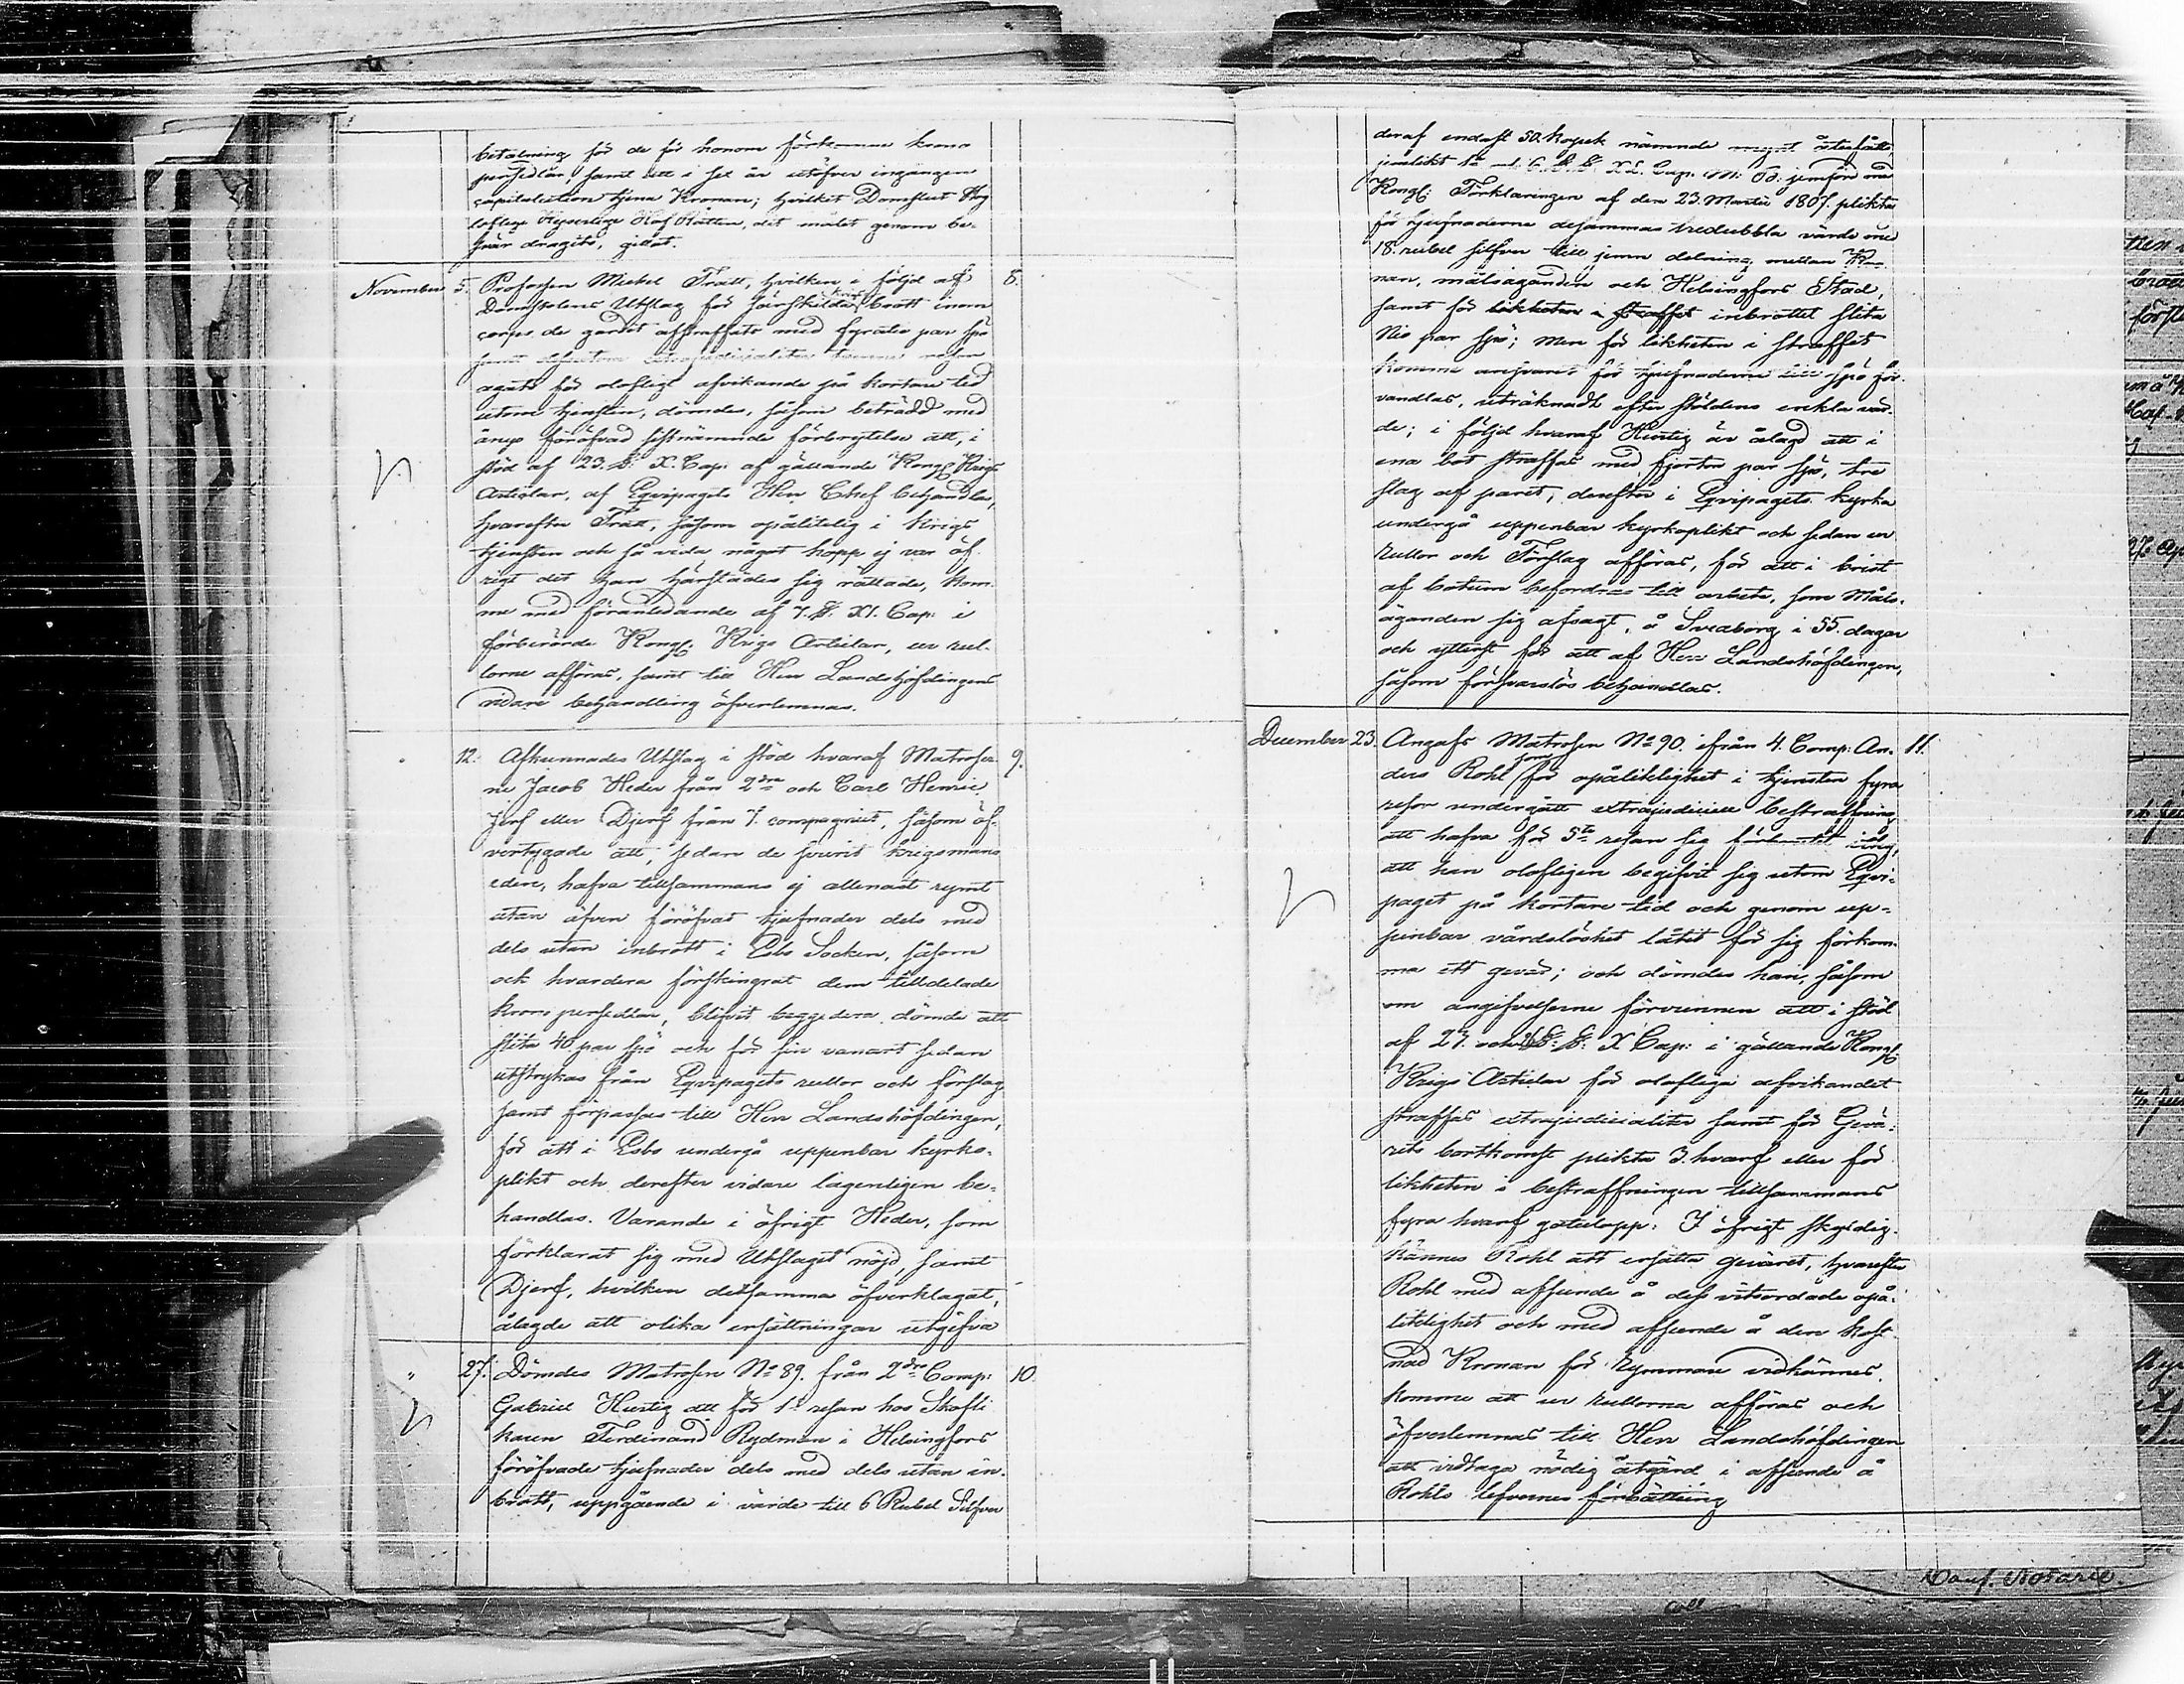 betalning för de för honom förkomne krono
persedlar, samt att i sex år utöfver ingången
capitulation tjena Kronan; hvilket Domslut Hög
loflige Kejserlige Hof Rätten, dit målet genom be-
svär dragits, gillat.
November 5. Profossen Mickel Trall, hvilken i följd af 8.
Domstolens Utslag för särskilda brott inom
corps de gardet afstraffats med fyratio par spö
samt dessutom extrajudicialiter resor
agats för olofligt afvikande på kortare tid
utom tjensten, dömdes, såsom beträdd med
ånyo föröfvad sistnämnde förbrytelse att, i
stöd af 23. §. X. Cap: af gällande Kongl: Krigs
Articlar, af Eqvipagets Herr Chef behandlas,
hvarefter Trall, såsom opålitelig i krigs
tjensten och så vida något hopp ej var öf-
rigt det han härstädes sig rättade, kom-
me med föranledande af 7. §. XI. Cap: i
förberörde Kongl: Krigs Articlar, ur rul-
lorne afföras, samt till Herr Landshöfdingens
vidare behandling öfverlemnas.
12. Afkunnades Utslag i stöd hvaraf Matroser- 9.
ne Jacob Heder från 2dra och Carl Henric
Jerf eller Djerf från 7. compagniet, såsom öf-
vertygade att, sedan de svurit krigsmans
eden, hafva tillsammans ej allenast rymt
utan äfven föröfvat tjufnader dels med
dels utan inbrott i Esbo Socken, såsom
ock hvardera förskingrat dem tilldelade
krono persedlar, blifvit beggedera dömde att
slita 40 par spö och för sin vanart sedan
utstrykas från Eqvipagets rullor och förslag
samt förpassas till Herr Landshöfdingen,
för att i Esbo undergå uppenbar kyrko-
plikt och derefter vidare lagenligen be-
handlas. Varande i öfrigt Heder, som
förklarat sig med Utslaget nöjd, samt
Djerf, hvilken detsamma öfverklagat,
ålagde att olika ersättningar utgifva
" 27. Dömdes Matrosen No 89. från 2dra Comp: 10.
Gabriel Hurtig att för 1a resan hos Skofli-
karen Ferdinand Rydman i Helsingfors
föröfvade tjufnader dels med dels utan in-
brott, uppgående i värde till 6 Rubel Silfver
deraf endast 50. kopek nämnde återfåtts
jemlikt 1a 6. §. §. XL. Cap. M: B. jemförd med
Kongl: Förklaringen af den 23. Martii 1807. plikta
för tjufnaderne desammas tredubbla värde med
18. rubel silfver till jemn delning mellan Kro-
nan, målsäganden och Helsingfors Stad,
samt för likheten i straffet inbrottet slita
Nio par spö; men för likheten i straffet
komme ansvaret för tjufnaderne till spö för-
vandlas, uträknadt efter stöldens enkla vär-
de; i följd hvaraf Hurtig är ålagd att i
ena bot straffas med fjorton par spö, tre
slag af paret, derefter i Eqvipagets kyrka
undergå uppenbar kyrkoplikt och sedan ur
rullor och Förslag afföras, för att i brist
af botum befordras till arbete, som Måls-
äganden sig afsagt, å Sveaborg i 55. dagar
och ytterst för att af Herr Landshöfdingen,
såsom försvarslös behandlas.
December 23. Angafs Matrosen No 90. ifrån 4. Comp: An- 11.
som
ders Rohl för opålitlighet i tjensten fyra
resor undergått extrajudiciell bestraffning
att hafva för 5te resan sig
att han olofligen begifvit sig utom Eqvi-
paget på kortare tid och genom up-
penbar vårdslöshet låtit för sig förkom-
ma ett gevär; och dömdes han, såsom
om angifvelserne förvunnen att i stöd
af 27. och §. §. X Cap: i gällande Kongl
Krigs Articlar för olofliga afvikandet
straffas extrajudicialiter samt för Gevä-
rets bortkomst plikta 3. hvarf eller för
likheten i bestraffningen tillsammans
fyra hvarf gatulopp: I öfrigt skyldig-
kännes Rohl att ersätta geväret, hvarefter
Rohl med afseende å dess vitsordade opå-
litlighet och med afseende å den kost-
nad Kronan för rymmare vidkännes,
komme att ur rullorna afföras och
öfverlemnas till Herr Landshöfdingen
att vidtaga nödig åtgärd i afseende å
Rohls lefvernes förbättring
Notarie.